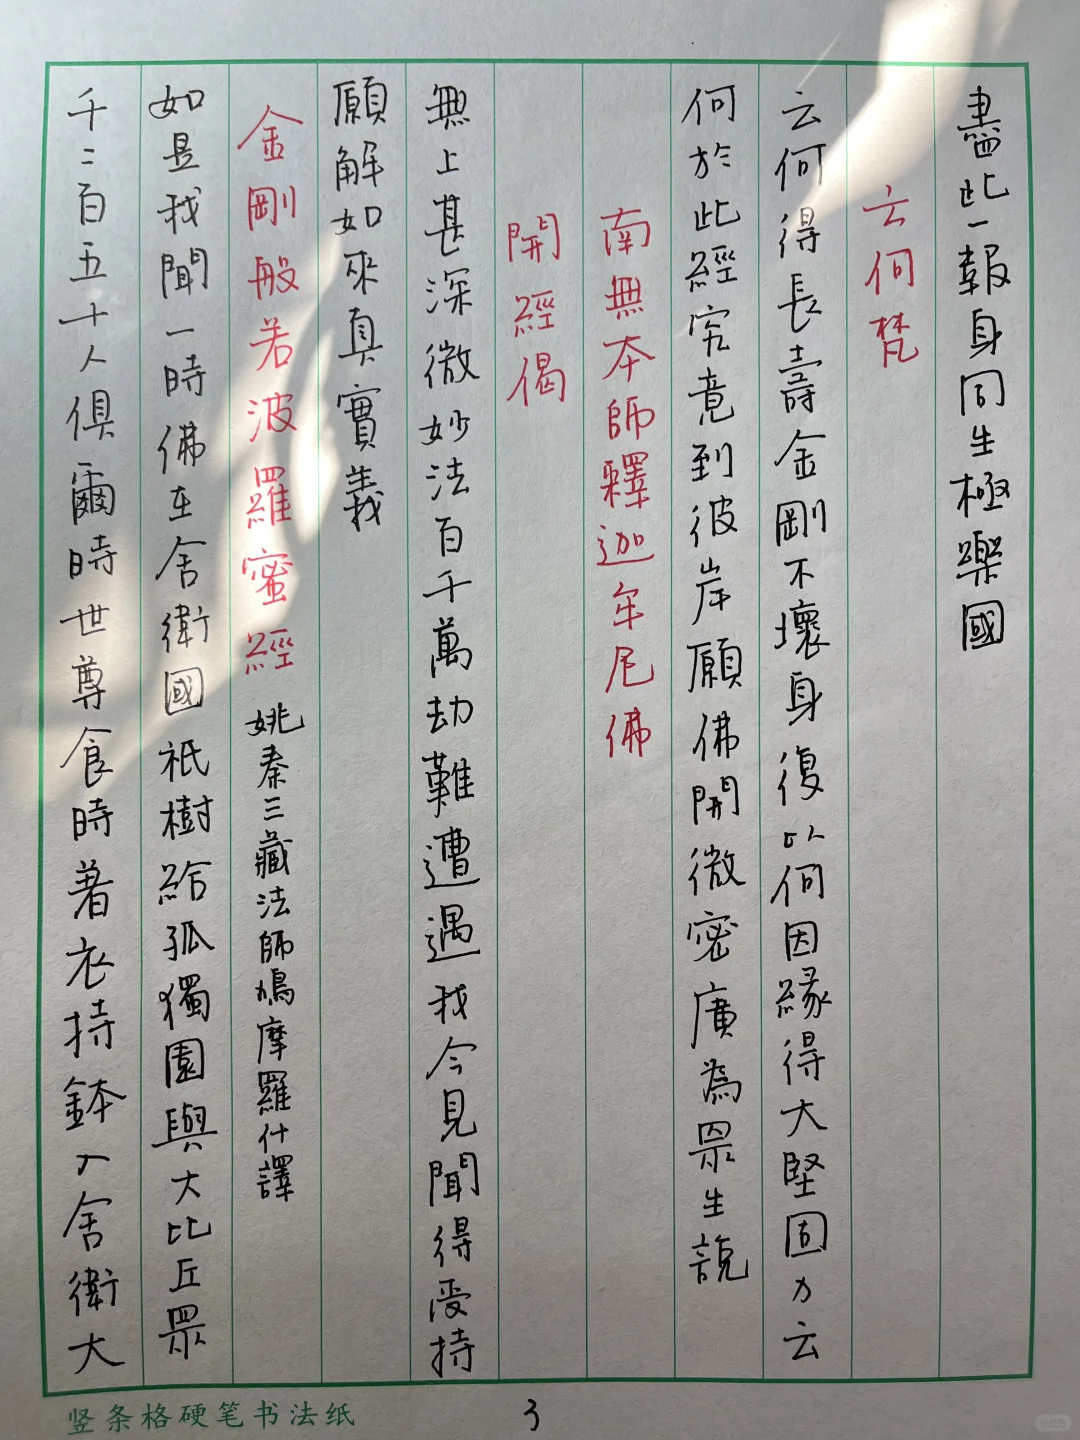 盡此一報身同生極樂國
云何梵
云何得長壽金剛不壞身復以何因緣得大堅固力云
何於此經究竟到彼岸願佛開微密廣為眾生說
南無本師釋迦牟尼佛
開經偈
無上甚深微妙法百千萬劫難遭遇我今見聞得受持
願解如來真實義
金剛般若波羅蜜經 姚秦三藏法師鳩摩羅什譯
如是我聞一時佛在舍衛國祇樹給孤獨園與大比丘眾
千二百五十人俱爾時世尊食時著衣持鉢入舍衛大
竖条格硬笔书法纸
3